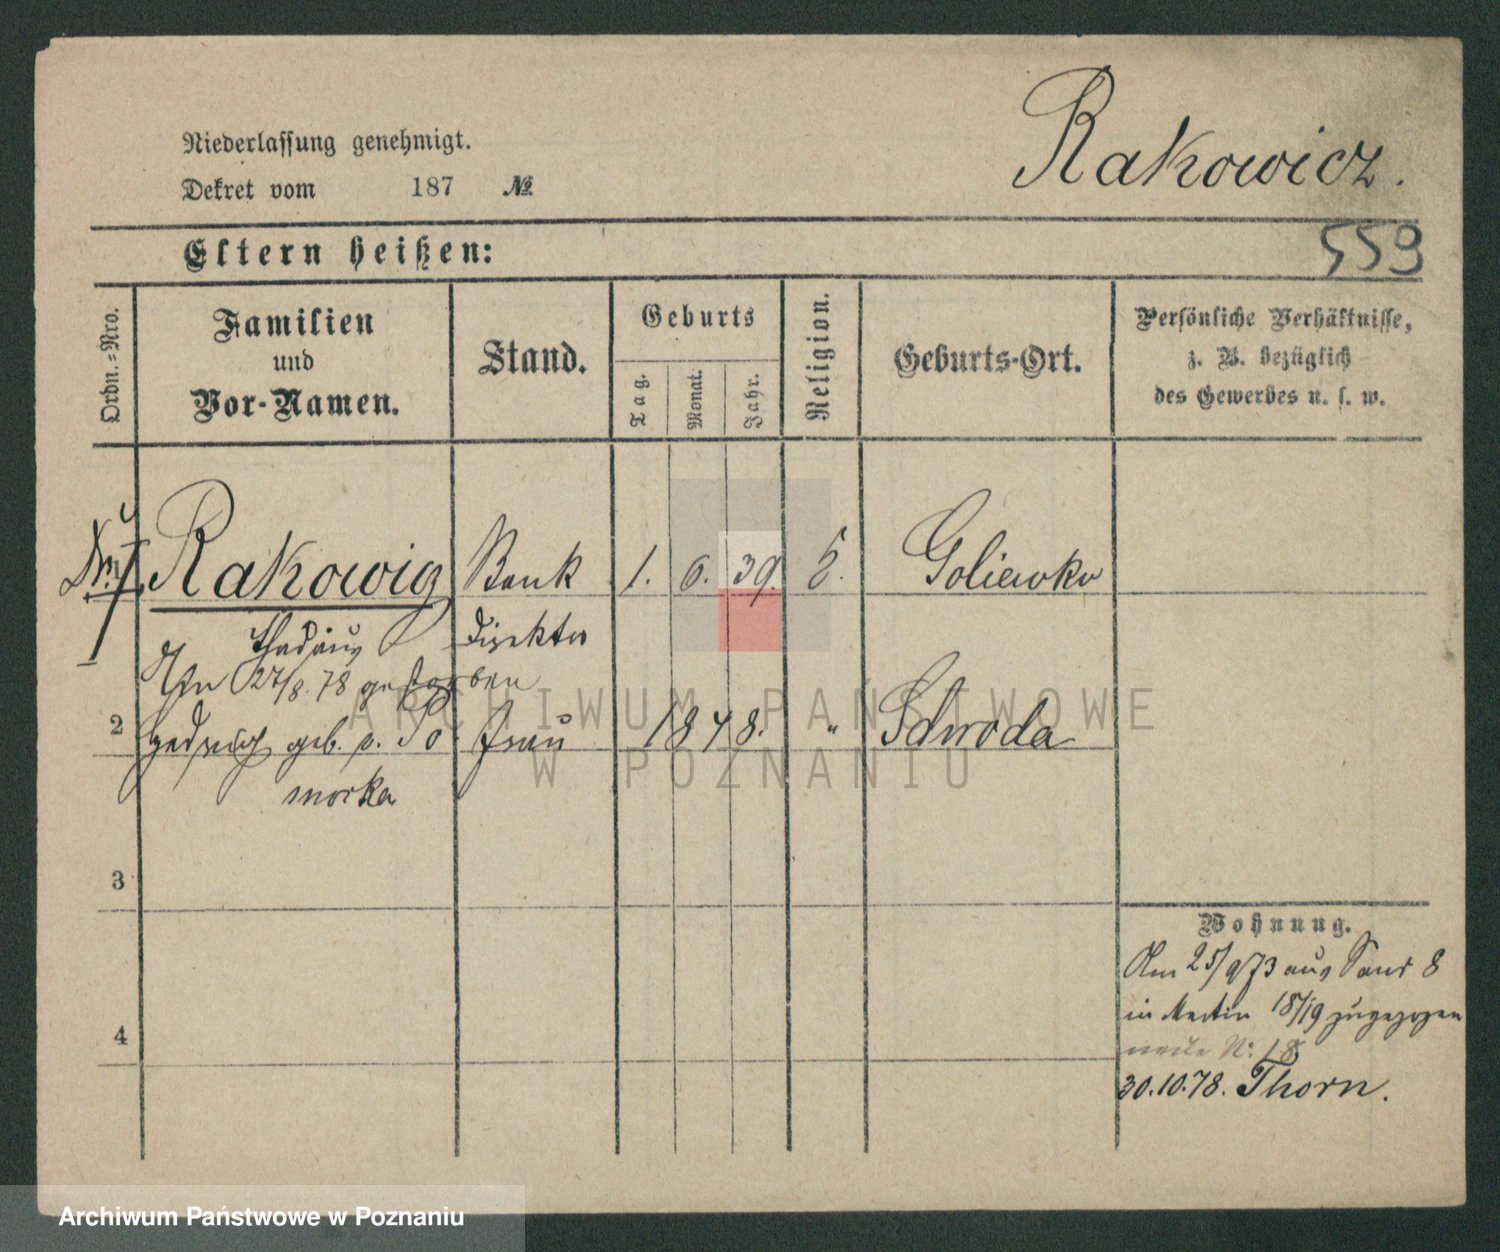 Rakowicz.
Niederlassung genehmigt.
Dekret vom 187 №
559
Eltern heißen:
Ordn.=Nro.
Familien
und
Vor-Namen.
Stand.
Geburts
Tag.
Monat.
Jahr.
Religion.
Geburts-Ort.
Persönliche Verhältnisse,
z. B. bezüglich
des Gewerbes u. s. w.
Rakowicz Bank 1. 6. 39.
Thadäus Direktor
Am 27/8.78 gestorben
2 Hedwig geb. v. Po Frau 1848. " Schroda
morska
3
Wohnung.
Am 25/9 73 aus Sand 8
in Martin 18/19 zugezogen
4
neue N: 18
30.10.78. Thorn.
ARCHIWUM PAŃSTWOWE
W POZNANIU
Archiwum Państwowe w Poznaniu